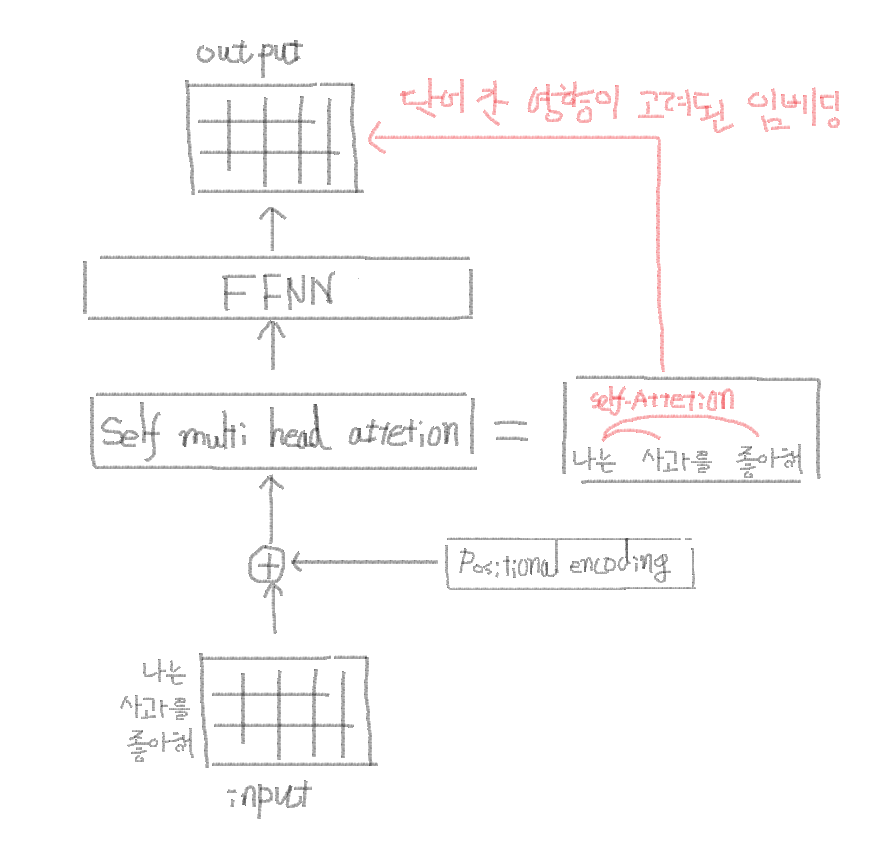 output
단어 간 영향이 고려된 임베딩
FFNN
self-Attetion
Self multi head attetion
=
나는 사과를 좋아해
+
Positional encoding
나는
사과를
좋아해
input